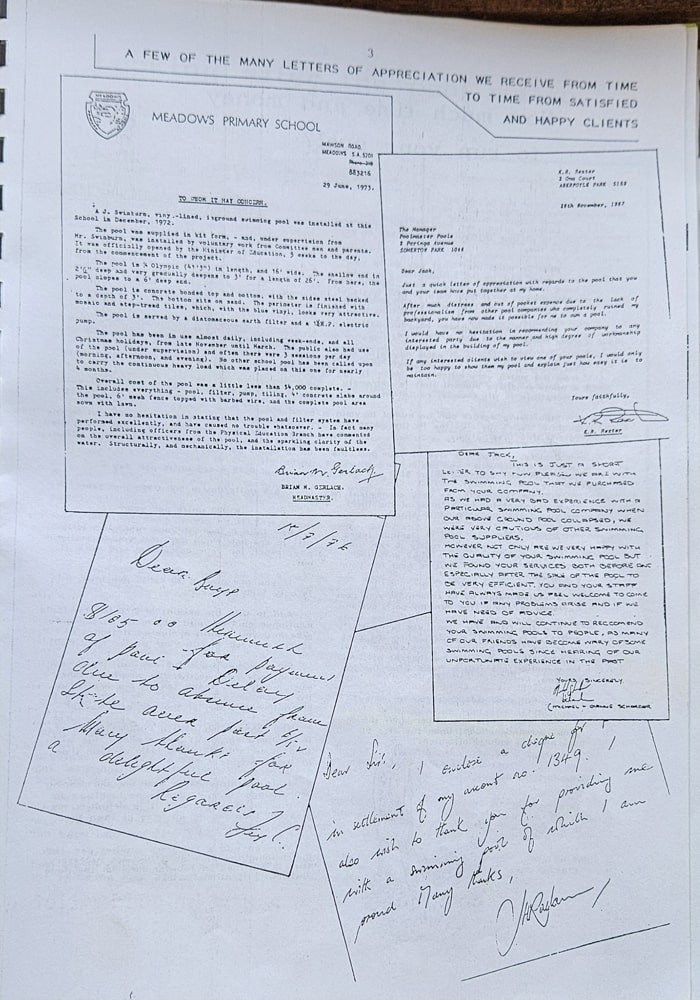 3
A FEW OF THE MANY LETTERS OF APPRECIATION WE RECEIVE FROM TIME
TO TIME FROM SATISFIED
AND HAPPY CLIENTS
MEADOWS
MEADOWS PRIMARY SCHOOL
MAWSON ROAD,
MEADOWS S.A. 5201
883216
29 June, 1973.
TO WHOM IT MAY CONCERN.
A J. Swinburn, vinyl-lined, inground swimming pool was installed at this
School in December, 1972.
The pool was supplied in kit form, - and, under supervision from
Mr. Swinburn, was installed by voluntary work from Committee men and parents.
It was officially opened by the Minister of Education, 3 weeks to the day,
from the commencement of the project.
The pool is ¼ Olympic (41'3") in length, and 16' wide. The shallow end is
2'6" deep and very gradually deepens to 3' for a length of 26'. From here, the
pool slopes to a 6' deep end.
The pool is concrete bonded top and bottom, with the sides steel backed
to a depth of 3'. The bottom site on sand. The perimeter is finished with
mosaic and step-tread tiles, which, with the blue vinyl, looks very attractive.
The pool is served by a diatomaceous earth filter and a H.P. electric
pump.
The pool has been in use almost daily, including week-ends, and all
Christmas holidays, from late November until March. The public also had use
of the pool (under supervision) and often there were 3 sessions per day
(morning, afternoon, and evening). No other school pool has been called upon
to carry the continuous heavy load which was placed on this one for nearly
4 months.
Overall cost of the pool was a little less than $4,000 complete, -
This includes everything - pool, filter, pump, tiling, 4' concrete slabs around
the pool, 6' mesh fence topped with barbed wire, and the complete pool area
sown with lawn.
I have no hesitation in stating that the pool and filter system have
performed excellently, and have caused no trouble whatsoever. - In fact many
people, including officers from the Physical Education Branch have commented
on the overall attractiveness of the pool, and the sparkling clarity of the
water. Structurally, and mechanically, the installation has been faultless.
Brian M. Gerlach
BRIAN M. GERLACH.
HEADMASTER.
K.R. Rexter
3 Ona Court
ABERFOYLE PARK 5159
18th November, 1987
The Manager
Poolmaster Pools
8 Peringa Avenue
SOMERTON PARK 5044
Dear Jack,
Just a quick letter of appreciation with regards to the pool that you
and your team have put together at my home.
After much distress and out of pocket expense due to the lack of
professionalism from other pool companies who completely ruined my
backyard, you have now made it possible for me to own a pool.
I would have no hesitation in recommending your company to any
interested party due to the manner and high degree of workmanship
displayed in the building of my pool.
If any interested clients wish to view one of your pools, I would only
be too happy to show them my pool and explain just how easy it is to
maintain.
Yours faithfully,
K.R. Rexter
DEAR JACK,
THIS IS JUST A SHORT
LETTER TO SAY HOW PLEASED WE ARE WITH
THE SWIMMING POOL THAT WE PURCHASED
FROM YOUR COMPANY.
AS WE HAD A VERY BAD EXPERIENCE WITH A
PARTICULAR SWIMMING POOL COMPANY WHEN
OUR ABOVE GROUND POOL COLLAPSED, WE
WERE VERY CAUTIOUS OF OTHER SWIMMING
POOL SUPPLIERS.
HOWEVER NOT ONLY ARE WE VERY HAPPY WITH
THE QUALITY OF YOUR SWIMMING POOL BUT
WE FOUND YOUR SERVICES BOTH BEFORE AND
ESPECIALLY AFTER THE SALE OF THE POOL TO
BE VERY EFFICIENT. YOU AND YOUR STAFF
HAVE ALWAYS MADE US FEEL WELCOME TO COME
TO YOU IF ANY PROBLEMS ARISE AND IF WE
HAVE NEED OF ADVICE.
WE HAVE AND WILL CONTINUE TO RECCOMEND
YOUR SWIMMING POOLS TO PEOPLE, AS MANY
OF OUR FRIENDS HAVE BECOME WARY OF SOME
SWIMMING POOLS SINCE HEARING OF OUR
UNFORTUNATE EXPERIENCE IN THE PAST
YOURS SINCERELY.
15/7/76
Dear
$185 00 Herewith
for payment
of pool & Delay
due to absence from
State
Many thanks for
a delightful pool.
Regards
Dear Sir, I enclose a cheque for
in settlement of my account no. 1349. I
also wish to thank you for providing me
with a swimming pool of which I am
proud Many thanks,